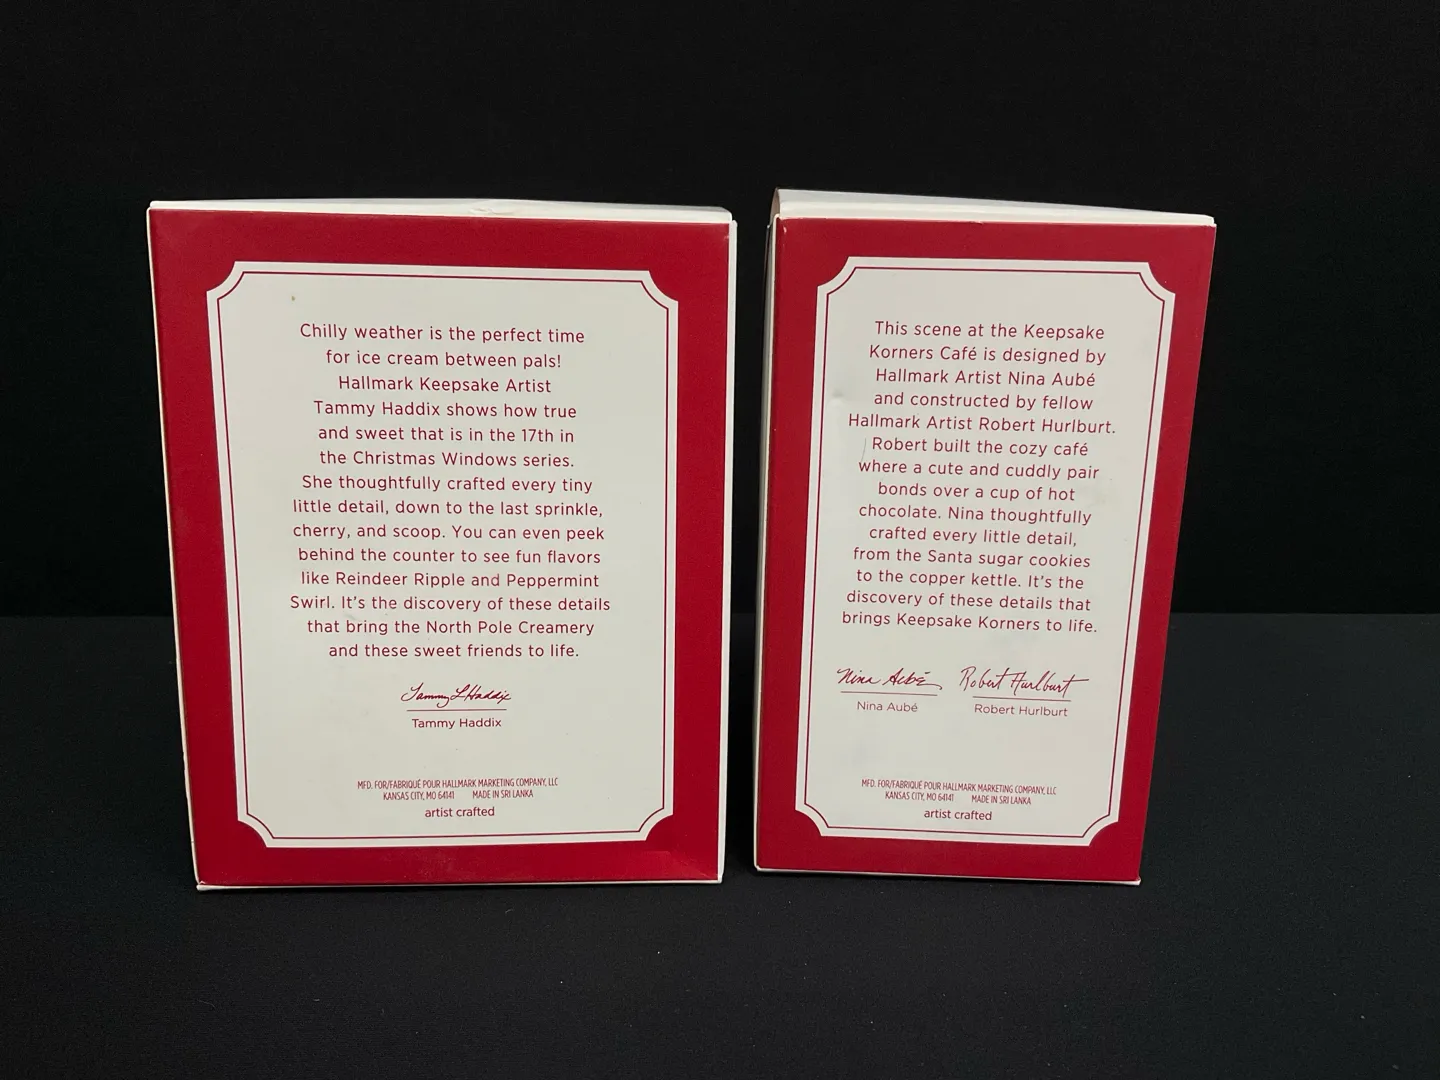 Chilly weather is the perfect time
for ice cream between pals!
Hallmark Keepsake Artist
Tammy Haddix shows how true
and sweet that is in the 17th in
the Christmas Windows series.
She thoughtfully crafted every tiny
little detail, down to the last sprinkle,
cherry, and scoop. You can even peek
behind the counter to see fun flavors
like Reindeer Ripple and Peppermint
Swirl. It's the discovery of these details
that bring the North Pole Creamery
and these sweet friends to life.
Tammy L Haddix
Tammy Haddix
MFD. FOR/FABRIQUÉ POUR HALLMARK MARKETING COMPANY, LLC
KANSAS CITY, MO 64141 MADE IN SRI LANKA
artist crafted
This scene at the Keepsake
Korners Café is designed by
Hallmark Artist Nina Aubé
and constructed by fellow
Hallmark Artist Robert Hurlburt.
Robert built the cozy café
where a cute and cuddly pair
bonds over a cup of hot
chocolate. Nina thoughtfully
crafted every little detail,
from the Santa sugar cookies
to the copper kettle. It's the
discovery of these details that
brings Keepsake Korners to life.
Nina Aubé Robert Hurlburt
Nina Aubé Robert Hurlburt
MFD. FOR/FABRIQUÉ POUR HALLMARK MARKETING COMPANY, LLC
KANSAS CITY, MO 64141 MADE IN SRI LANKA
artist crafted